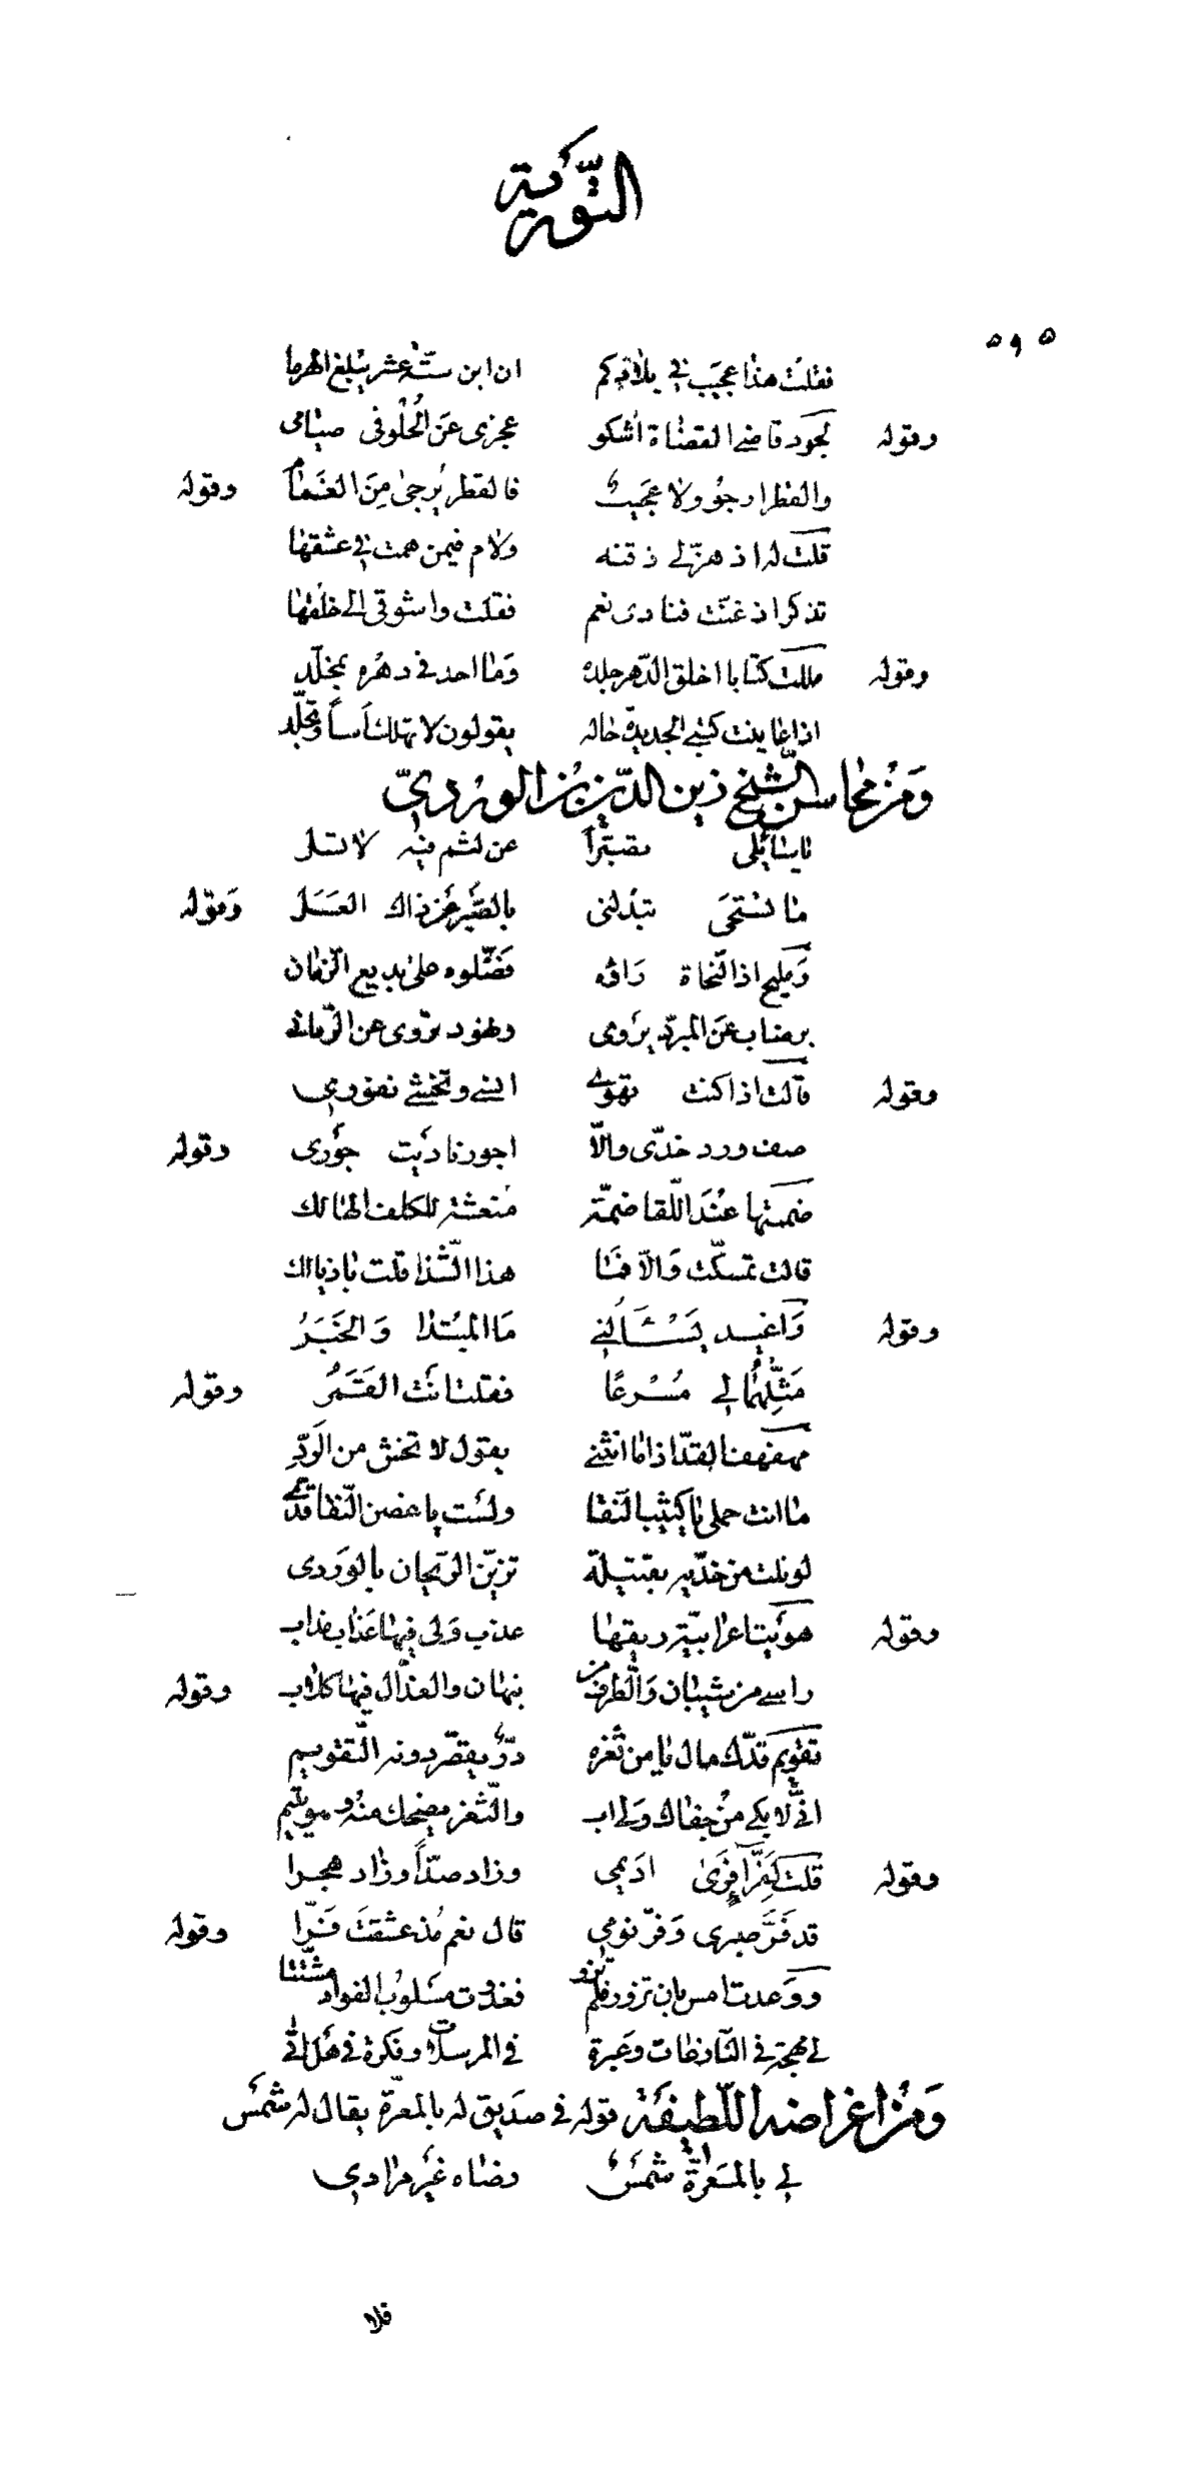 التورية
٥٩٥
فقلت هذا عجيب في بلادكم ان ابن ستة عشر يبلغ الهرما
وقوله لجود قاضي القضاة أشكو عجزي عن الحلو في صيامي
والقطر ارجو ولا عجيب فالقطر يرجى من الغمام وقوله
قلت له اذ هز لي ذقنه ولام فيمن همت في عشقها
تذكر اذ غنت فنادى نعم فقلت واشوقي الى خلقها
وقوله ملكت كتابا اخلق الدهر جلده وما احد في دهره بمخلد
اذا عاينت كتبي الجديدة حاله يقولون لا تهلك أسا وتجلد
ومن محاسن الشيخ زين الدين بن الوردي
ياسائلي تصبرا عن لثم فيه لا تسل
ما تستحى تبدلني بالصبر عن ذاك العسل وقوله
ومليح اذا النحاة راوه فضلوه على بديع الزمان
برضاب عن المبرد يروى ونهود تروى عن الرماني
وقوله قالت اذا كنت تهوى انسي وتخشى نفوري
صف ورد خدي والا اجور ناديت جوري وقوله
ضممتها عند اللقا ضمة منعشة للكلف الهالك
قالت تمسكت والا فما هذا الشذا قلت باذيالك
وقوله واغيد يسألني ما المبتدا والخبر
مثلهما لي مسرعا فقلت انت القمر وقوله
مهفهف القد اذا ما انثنى يقول لا تخش من الرد
ما انت حملي يا كثيب النقا ولست يا غصن النقا قدي
لو نلت من خديه تقبيلة تزين الريحان بالوردي
وقوله هويت اعرابية ريقها عذب ولي فيها عذاب مذاب
راسي من شيبان والطرف من نبهان والعذال فيها كلاب وقوله
تقويم قدك مال يا من ثغره در يقصر دونه التقويم
اني لابكي من جفاك ولي اب والثغر يضحك منه وهو يتيم
وقوله قلت كفرا فرى اديمي وزاد صدا وزاد هجرا
قد فر صبري وفر نومي قال نعم مذ عشقت فرا وقوله
ووعدت امس بان تزور فلم تزر فغدوت مسلوب الفواد مشتتا
لي مهجة في النازعات وعبرة في المرسلات وفكرة في هل اتى
ومن اغراضه اللطيفة قوله في صديق له بالمعرة يقال له شمس
لي بالمعرة شمس رضاه غير مرادي
فلا